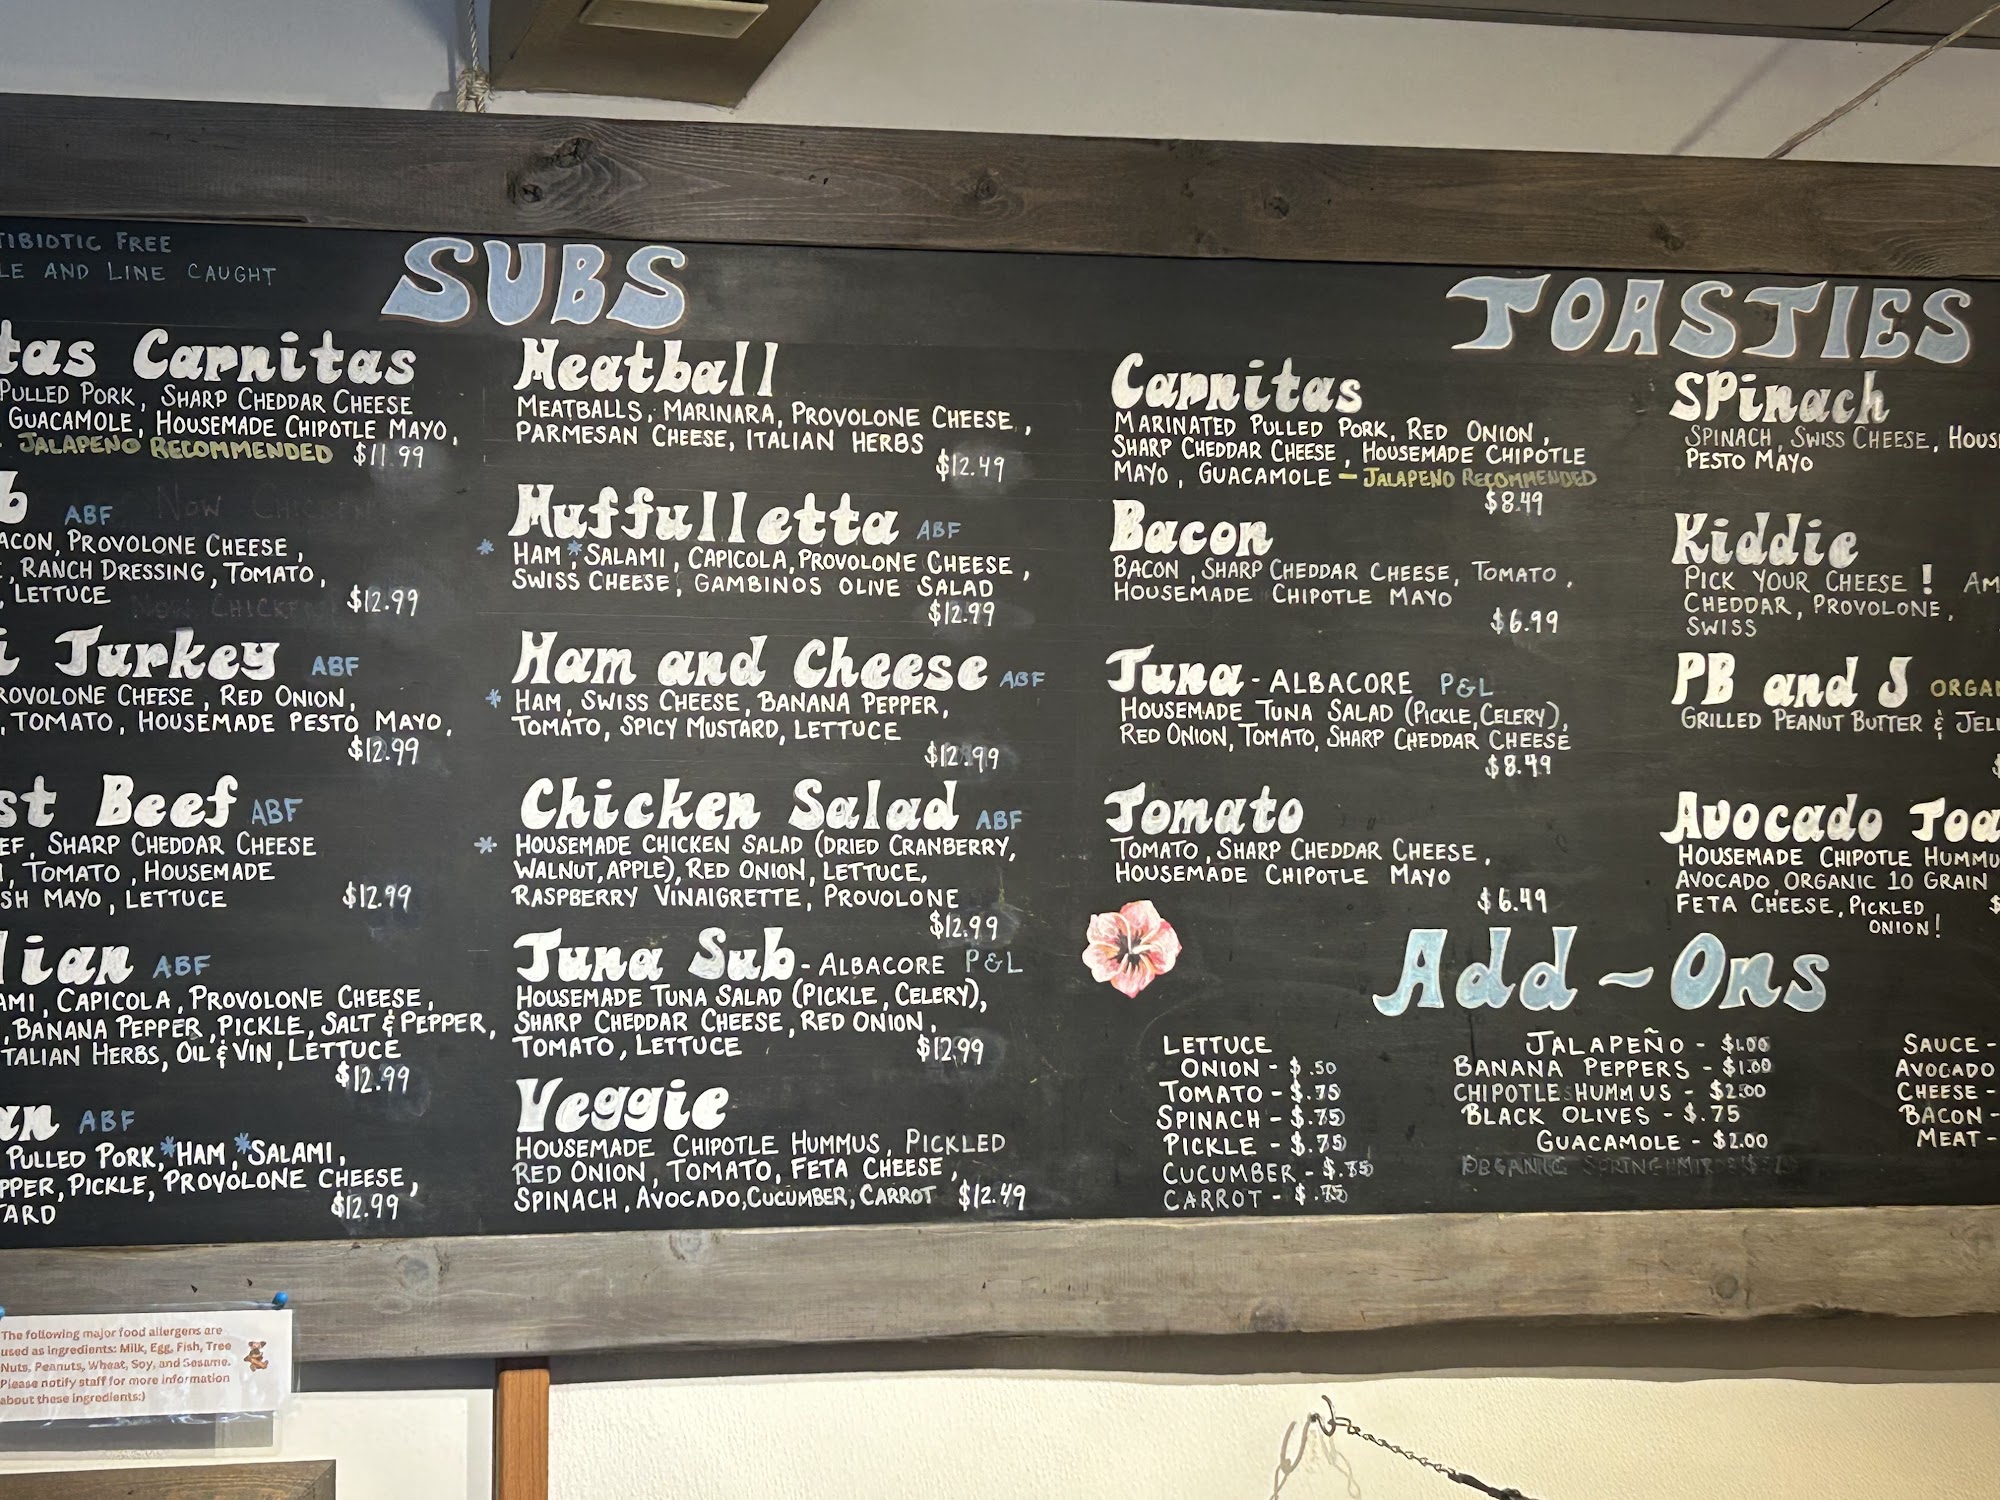 FREE
AND LINE CAUGHT
SUBS
Carnitas
PULLED PORK, SHARP CHEDDAR CHEESE
GUACAMOLE, HOUSEMADE CHIPOTLE MAYO,
JALAPENO RECOMMENDED $11.99
ABF NOW CHICKEN
PROVOLONE CHEESE,
, RANCH DRESSING, TOMATO,
, LETTUCE $12.99
Turkey ABF
CHEESE, RED ONION,
, TOMATO, HOUSEMADE PESTO MAYO,
$12.99
Beef ABF
SHARP CHEDDAR CHEESE
, TOMATO, HOUSEMADE
MAYO, LETTUCE $12.99
ABF
, CAPICOLA, PROVOLONE CHEESE,
, BANANA PEPPER, PICKLE, SALT & PEPPER,
HERBS, OIL & VIN, LETTUCE
$12.99
ABF
PULLED PORK, *HAM, *SALAMI,
, PICKLE, PROVOLONE CHEESE,
$12.99
Meatball
MEATBALLS, MARINARA, PROVOLONE CHEESE,
PARMESAN CHEESE, ITALIAN HERBS
$12.49
Muffulletta ABF
* HAM, *SALAMI, CAPICOLA, PROVOLONE CHEESE,
SWISS CHEESE, GAMBINOS OLIVE SALAD
$12.99
Ham and Cheese ABF
* HAM, SWISS CHEESE, BANANA PEPPER,
TOMATO, SPICY MUSTARD, LETTUCE
$12.99
Chicken Salad ABF
* HOUSEMADE CHICKEN SALAD (DRIED CRANBERRY,
WALNUT, APPLE), RED ONION, LETTUCE,
RASPBERRY VINAIGRETTE, PROVOLONE
$12.99
Tuna Sub - ALBACORE P&L
HOUSEMADE TUNA SALAD (PICKLE, CELERY),
SHARP CHEDDAR CHEESE, RED ONION,
TOMATO, LETTUCE $12.99
Veggie
HOUSEMADE CHIPOTLE HUMMUS, PICKLED
RED ONION, TOMATO, FETA CHEESE,
SPINACH, AVOCADO, CUCUMBER, CARROT $12.49
TOASTIES
Carnitas
MARINATED PULLED PORK, RED ONION,
SHARP CHEDDAR CHEESE, HOUSEMADE CHIPOTLE
MAYO, GUACAMOLE - JALAPENO RECOMMENDED
$8.49
Bacon
BACON, SHARP CHEDDAR CHEESE, TOMATO,
HOUSEMADE CHIPOTLE MAYO
$6.99
Tuna - ALBACORE P&L
HOUSEMADE TUNA SALAD (PICKLE, CELERY),
RED ONION, TOMATO, SHARP CHEDDAR CHEESE
$8.49
Tomato
TOMATO, SHARP CHEDDAR CHEESE,
HOUSEMADE CHIPOTLE MAYO
$6.49
SPinach
SPINACH, SWISS CHEESE,
PESTO MAYO
Kiddie
PICK YOUR CHEESE!
CHEDDAR, PROVOLONE,
SWISS
PB and J
GRILLED PEANUT BUTTER &
Avocado
HOUSEMADE CHIPOTLE
AVOCADO, ORGANIC 10 GRAIN
FETA CHEESE, PICKLED
ONION!
Add-Ons
LETTUCE
ONION - $.50
TOMATO - $.75
SPINACH - $.75
PICKLE - $.75
CUCUMBER - $.75
CARROT - $.75
JALAPEÑO - $1.00
BANANA PEPPERS - $1.00
CHIPOTLE HUMMUS - $2.00
BLACK OLIVES - $.75
GUACAMOLE - $2.00
ORGANIC
SAUCE -
AVOCADO
CHEESE -
BACON -
MEAT -
The following major food allergens are
used as ingredients: Milk, Egg, Fish, Tree
Nuts, Peanuts, Wheat, Soy, and Sesame.
Please notify staff for more information
about these ingredients:)